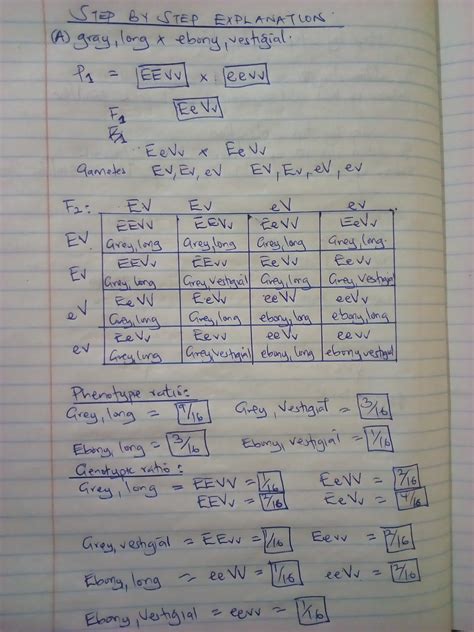 STEP BY STEP EXPLANATION
(A) gray, long x ebony, vestigial.
P1 = EEVV x eevv
F1 EeVv
F1
EeVv x EeVv
Gametes EV, Ev, eV EV, Ev, eV, ev
F2: EV Ev eV ev
EV EEVV EEVv EeVV EeVv
Grey, long Grey, long Grey, long Grey, long.
Ev EEVv EEvv EeVv Eevv
Grey, long Grey, vestigial Grey, long Grey, vestigial
eV EeVV EeVv eeVV eeVv
Grey, long Grey, long ebony, long ebony, long
ev EeVv Eevv eeVv eevv
Grey, long Grey, vestigial ebony, long ebony, vestigial
Phenotype ratio:
Grey, long = 9/16 Grey, vestigial = 3/16
Ebony, long = 3/16 Ebony, vestigial = 1/16
Genotypic ratio:
Grey, long = EEVV = 1/16 EeVV = 2/16
EEVv = 2/16 EeVv = 4/16
Grey, vestigial = EEvv = 1/16 Eevv = 2/16
Ebony, long = eeVV = 1/16 eeVv = 2/16
Ebony, Vestigial = eevv = 1/16